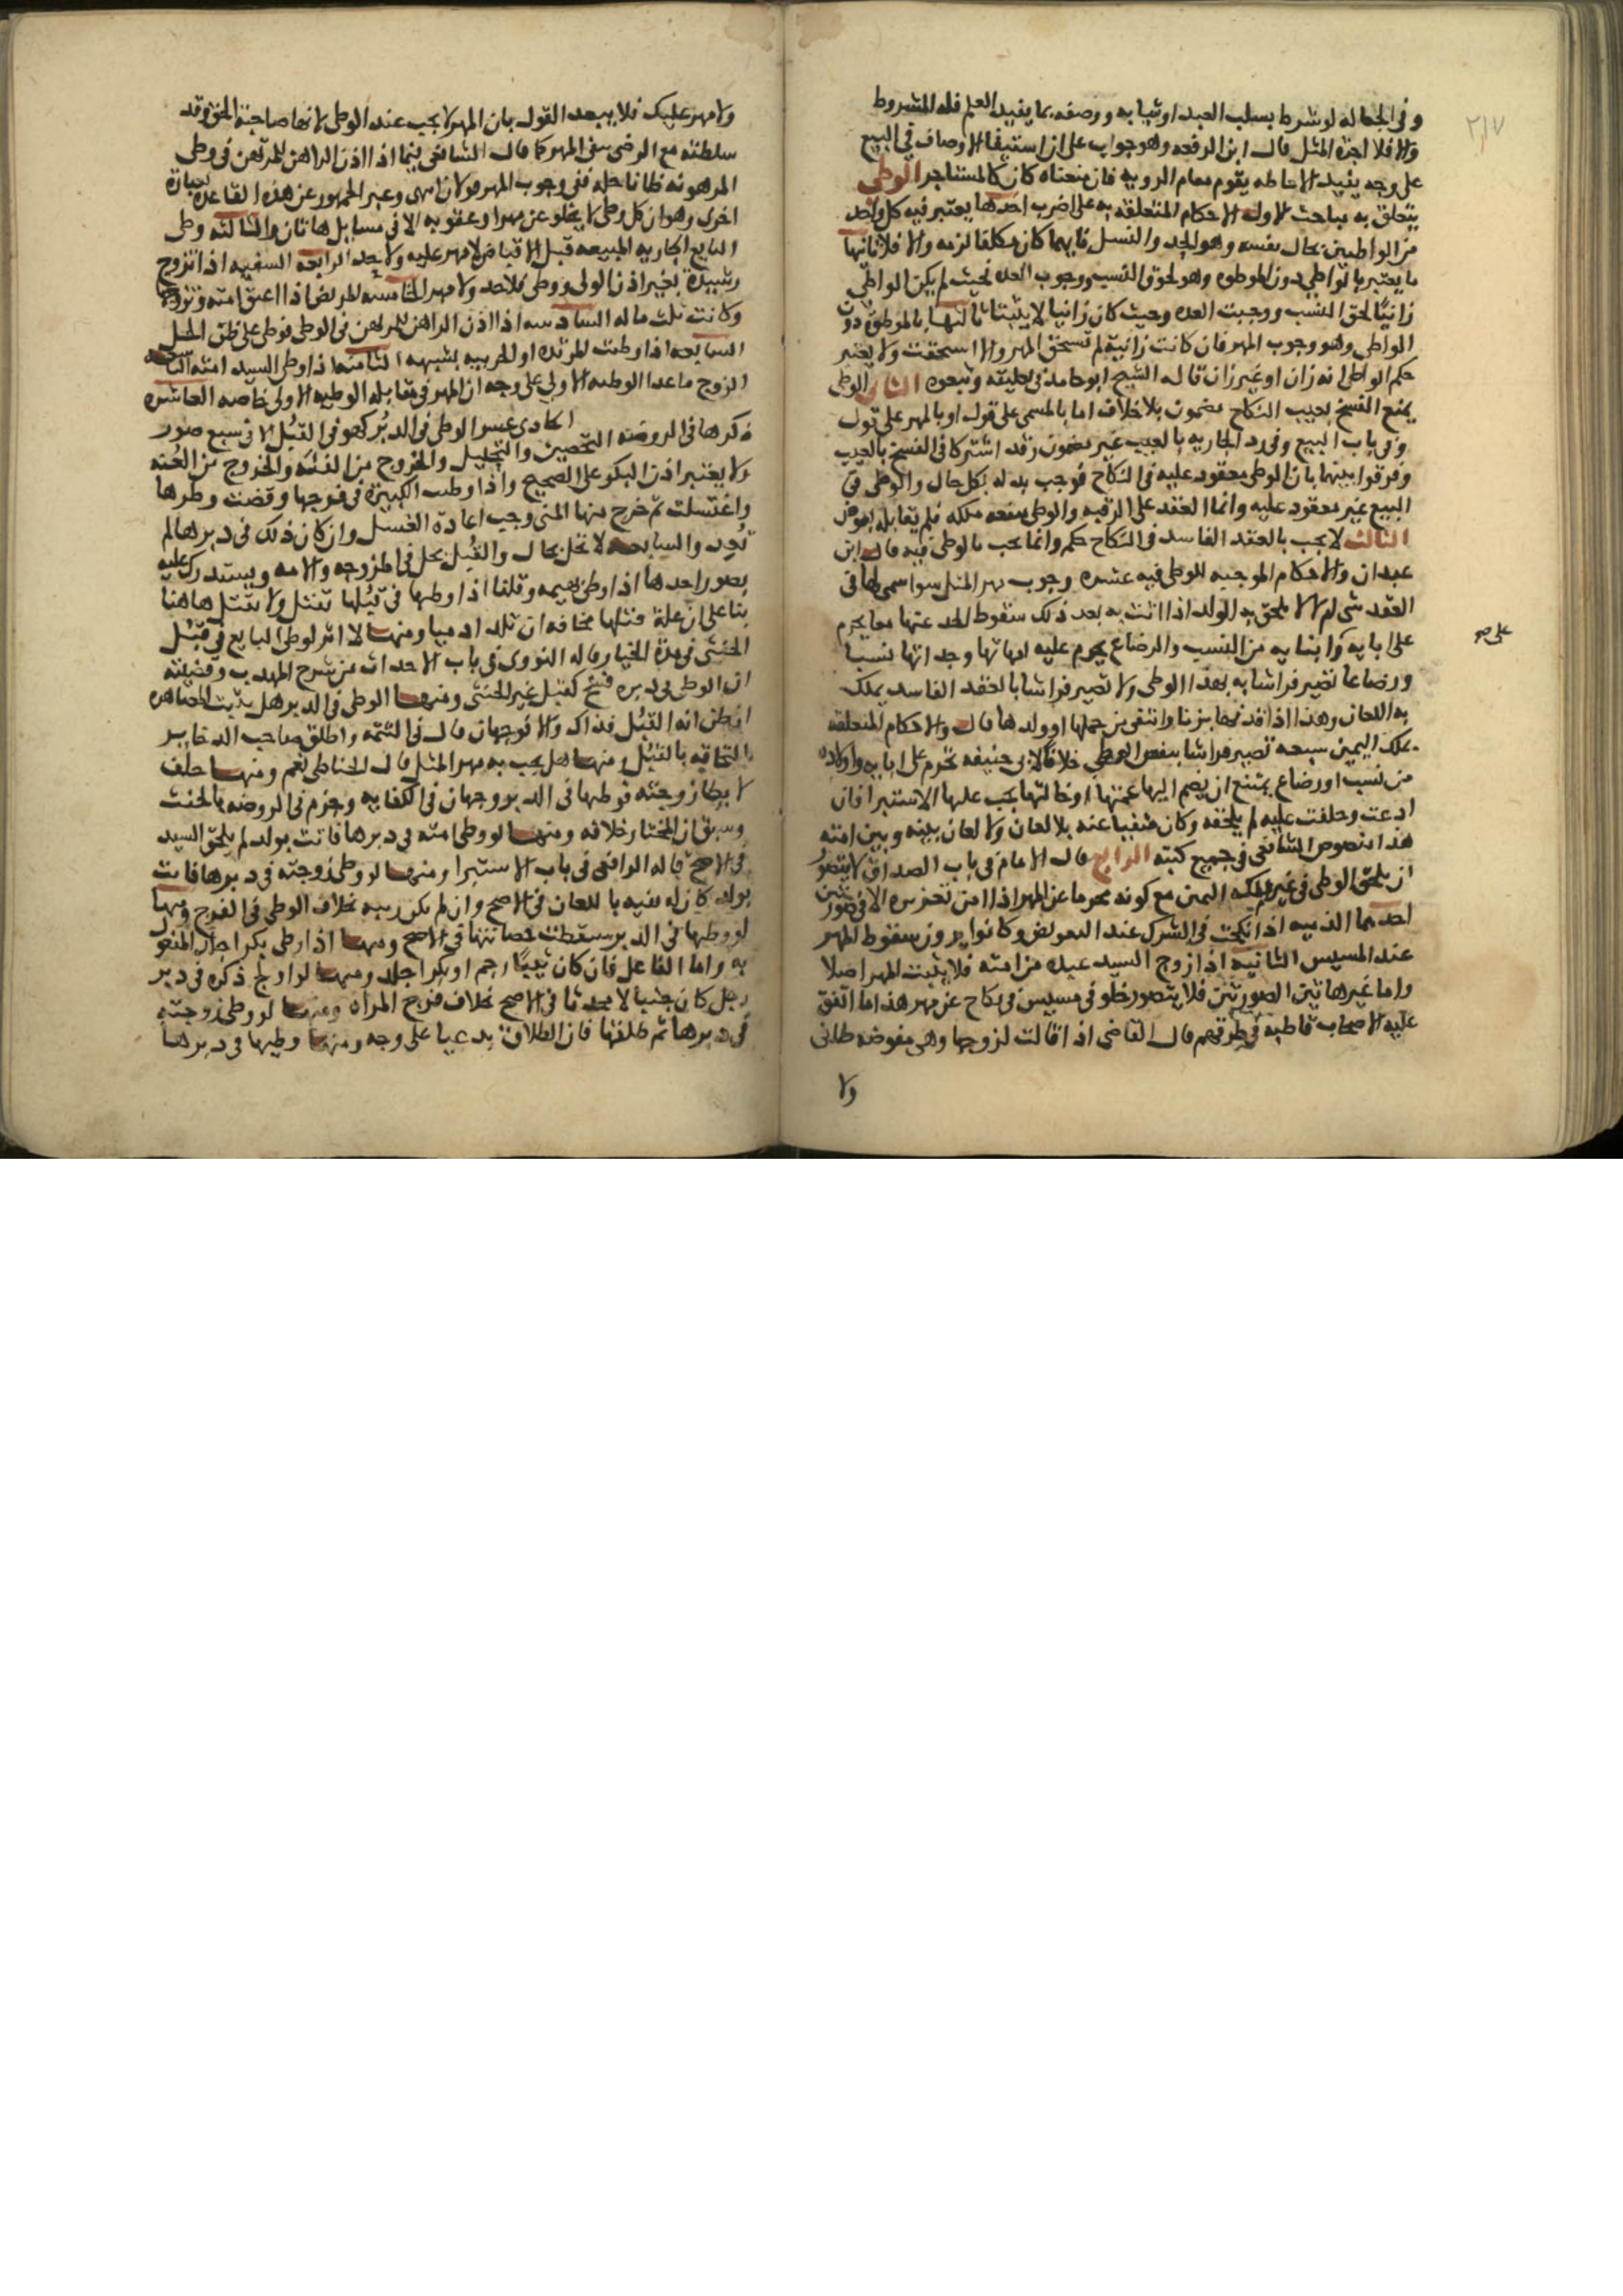 ٢١٧
وفي الجعالة لو شرط بسلب العبد او ثيابه ووصفه بما يفيد العلم فله المشروط
والا فلا اجرة المثل قال ابن الرفعه وهو جواب على ان استيفا الاوصاف في البيع
على وجه يفيد الاحاطه يقوم مقام الرويه فان منعناه كان كالمستاجر الوطى
يتعلق به مباحث الاول الاحكام المتعلقه به على اضرب احدها يعتبر فيه كل واحد
من الواطيين بحال نفسه وهو الحد والغسل فايهما كان مكلفا لزمه والا فلا ثانيها
ما يعتبر بالواطي دون الموطوه وهو لحوق النسب ووجوب العده بحيث لم يكن الواطي
زانيًا لحق النسب ووجبت العده وحيث كان زانيا لا يثبتا ثالثها بالموطوة دون
الواطي وهو وجوب المهر فان كانت زانية لم تستحق المهر والا استحقت ولا يعتبر
حكم الواطي انه زان او غير زان قاله الشيخ ابو حامد في تعليقه وتبعوه الثاني الوطى
يمنع الفسخ بعيب النكاح مضمون بلا خلاف اما بالمسمى على قول او بالمهر على قول
وفي باب البيع وفي رد الجاريه بالعيب غير مضمون وقد اشتركا في الفسخ بالعيب
وفرقوا بينهما بان الوطى معقود عليه في النكاح فوجب بدله بكل حال والوطى في
البيع غير معقود عليه وانما العقد على الرقبه والوطى منفعه ملكه فلم يقابله بعوض
الثالث لا يجب بالعقد الفاسد في النكاح حكم وانما يجب بالوطى فيه قال ابن
عبدان والاحكام الموجبه للوطى فيه عشره وجوب مهر المثل سوا سمى لها في
العقد شى ام لا يلحق به الولد اذا اتت به بعد ذلك سقوط الحد عنهما معا يحرم
على ابايه وابنايه من النسب والرضاع يحرم عليه امهاتها وجداتها نسبا
على صح
ورضاعا تصير فراشا به بهذا الوطى ولا تصير فراشا بالعقد الفاسد يملك
به اللعان وهذا اذا قذفها بزنا وانتفى من حملها او ولدها قال والاحكام المتعلقه
بملك اليمين سبعه تصير فراشا بنفس الوطى خلافا لابى حنيفه تحرم على ابايه واولاده
من نسب او رضاع يمتنع ان يضم اليها عمتها او خالتها يجب عليها الاستبرا فان
ادعت وحلفت عليه لم يلحقه وكان منفيا عنه بلا لعان ولا لعان بينه وبين امته
هذا نصوص الشافعى في جميع كتبه الرابع قال الامام في باب الصداق لا يتصور
ان يلحق الوطى في غير ملك اليمين مع كونه محرما عن المهر اذا لم الا في صورتين
احدهما الذميه اذا نكحت في الشرك عند التعويض وكانوا يرون سقوط المهر
عند المسيس الثانيه اذا زوج السيد عبده من امته فلا يثبت المهر اصلا
واما غير هاتين الصورتين فلا يتصور خلو في مسيس في نكاح عن مهر هذا ما اتفق
عليه الاصحاب قاطبه في طرقهم قال القاضى اذا قالت لزوجها وهي مفوضه طانى
ولا
ولا مهر عليك فلا يبعد القول بان المهر لا يجب عند الوطى لانها صاحبة الحق وقد
سلطته مع الرضى بنفى المهر كما قال الشافعى فيما اذا اذن الراهن للمرتهن في وطى
المرهونه ظانا حله ففي وجوب المهر قولان انتهى وعبر الجمهور عن هذه القاعده بعبارة
اخرى وهو ان كل وطى لا يخلو عن مهر او عقوبه الا في مسايل هاتان والثالثه وطى
البايع الجاريه المبيعه قبل الاقباض لا مهر عليه ولا يحد الرابعه السفيه اذا تزوج
رشيدة بغير اذن الولى ووطى فلا حد ولا مهر الخامسه المريض اذا اعتق امته وتزوجها
وكانت ثلث ماله السادسه اذا اذن الراهن للمرتهن في الوطى فوطى على ظن الحل
السابعه اذا وطيت المرتده او الحربيه بشبهه الثامنه اذا وطى السيد امته التاسعه
الزوج ما عدا الوطيه الاولى على وجه ان المهر في مقابله الوطيه الاولى خاصه العاشره
ذكرها في الروضه الحادى عشر الوطى في الدبر كهو في القُبُل الا في سبع صور
التحصين والتحليل والخروج من الفيئه والخروج من العُنه
ولا يعتبر اذن البكر على الصحيح واذا وطيت الكبيرة في فرجها وقضت وطرها
واغتسلت ثم خرج منها المنى وجب اعادة الغسل وان كان ذلك في دبرها لم
تُعِد والسابعه لا تحل بحال والقُبُل يحل في الزوجه والامه ويستدرك عليه
بصور احدها اذا وطى بهيمه وقلنا اذا وطيها في قُبُلها تقتل ولا تقتل هاهنا
بنا على ان علة قتلها مخافه ان تلد ادميا ومنها لا اثر لوطى البايع في قبُل
الخنثى في مدة الخيار قاله النووى في باب الاحداث من شرح المهذب وقضيته
ان الوطى في دبره فسخ كقبل غير الخنثى ومنها الوطى في الدبر هل يثبت المصاهره
ان ظن انه القبُل فذاك والا فوجهان قال في التتمه واطلق صاحب الذخاير
التحاقه بالقبُل ومنها هل يجب به مهر المثل قال الحناطى نعم ومنها حلف
لا يطا زوجته فوطيها في الدبر ووجهان في الكفايه وجزم في الروضه بالحنث
وسبق ان المختار خلافه ومنها لو وطى امته في دبرها فاتت بولد لم يلحق السيد
في الاصح قاله الرافعى في باب الاستبرا ومنها لو وطى زوجته في دبرها فاتت
بولد كان له نفيه باللعان في الاصح وان لم يكن ريبه بخلاف الوطى في الفرج ومنها
لو وطيها في الدبر سقطت حصانتها في الاصح ومنها اذا وطى بكرا جلد المفعول
به واما الفاعل فان كان ثيبًا رجم او بكرا جلد ومنها لو اولج ذكره في دبر
رجل كان جنبا لا محدثا في الاصح بخلاف فرج المراه ومنها لو وطى زوجته
في دبرها ثم طلقها فان الطلاق بدعيا على وجه ومنها وطيها في دبرها